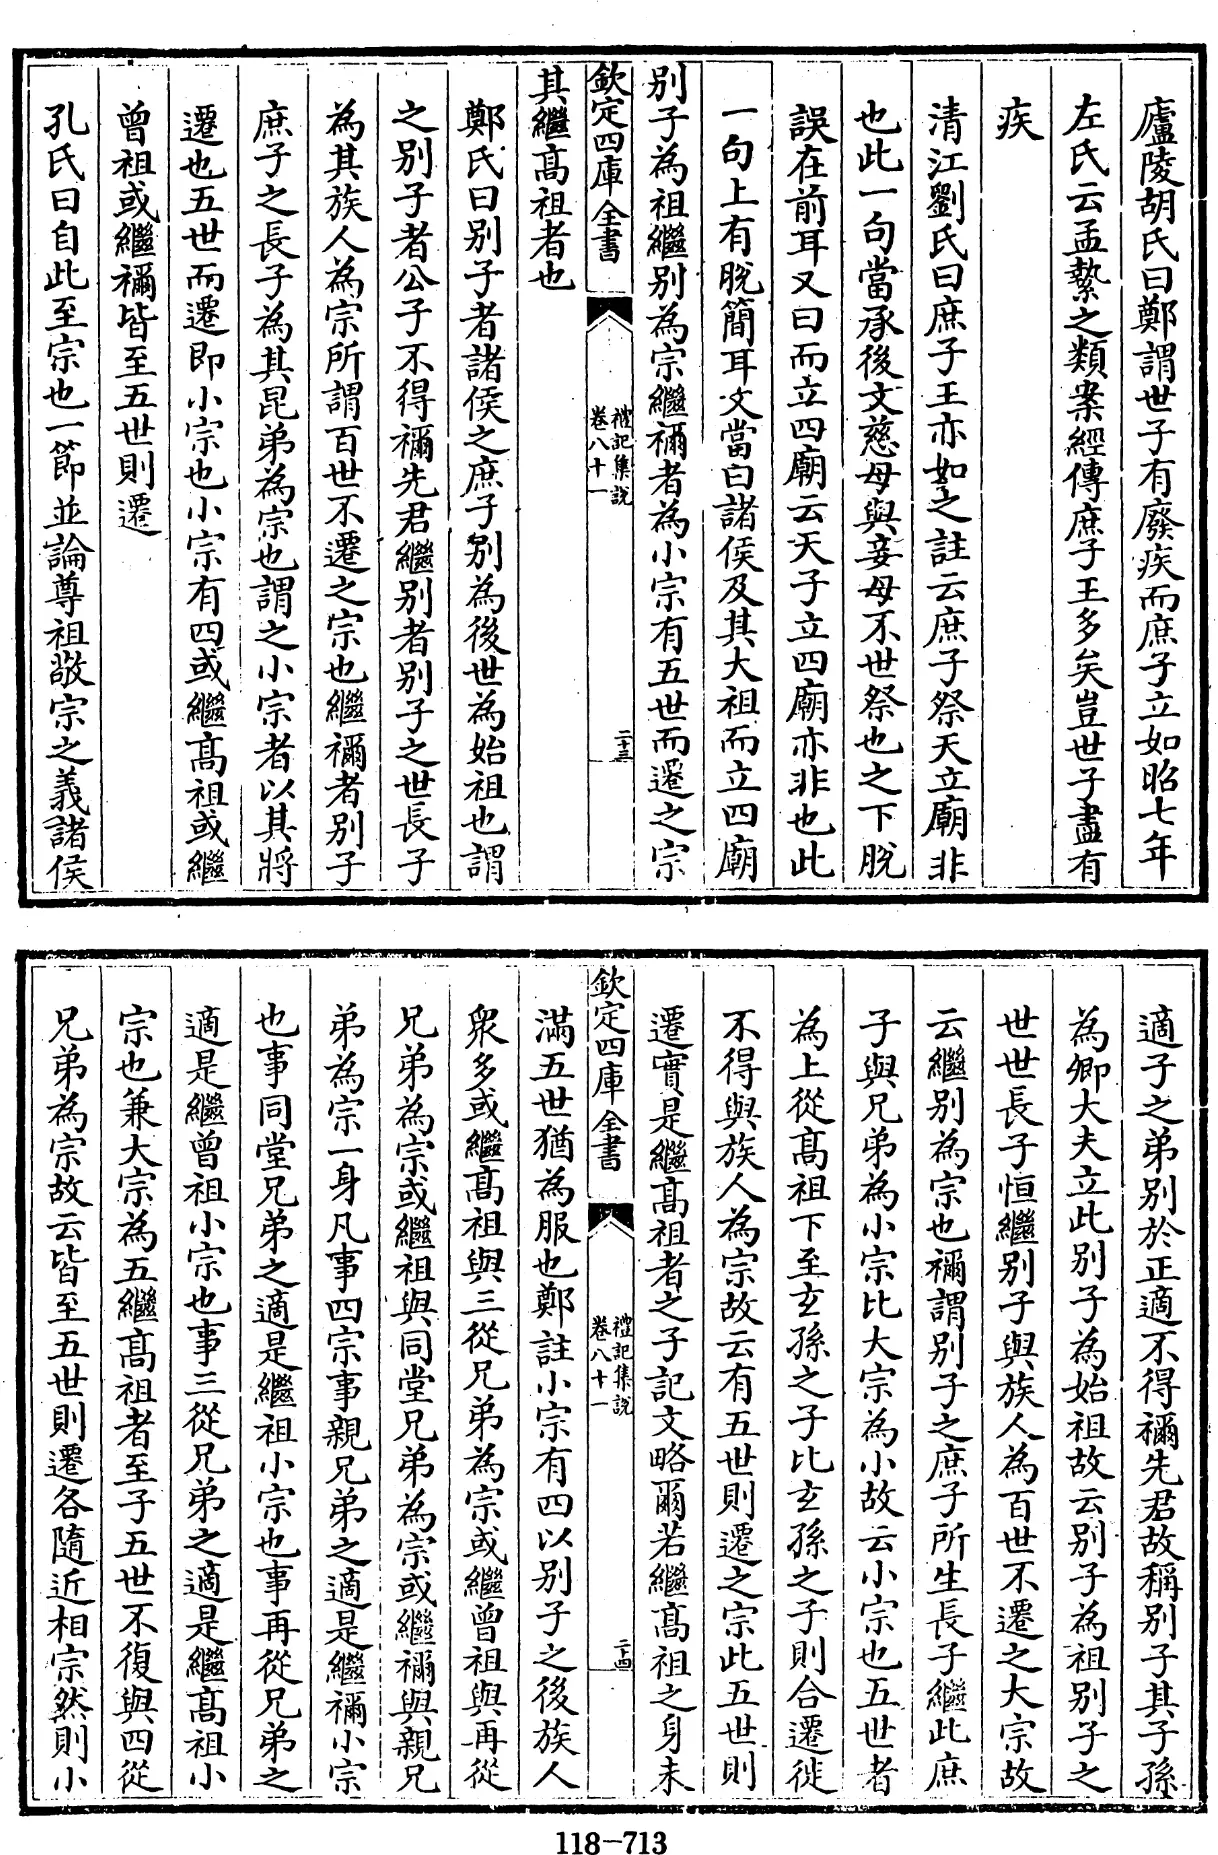 廬陵胡氏曰鄭謂世子有廢疾而庶子立如昭七年
左氏云孟縶之類案經傳庶子王多矣豈世子盡有
疾
清江劉氏曰庶子王亦如之註云庶子祭天立廟非
也此一句當承後文慈母與妾母不世祭也之下脫
誤在前耳又曰而立四廟云天子立四廟亦非也此
一句上有脫簡耳文當曰諸侯及其大祖而立四廟
別子為祖繼別為宗繼禰者為小宗有五世而遷之宗
欽定四庫全書
禮記集說
卷八十一
二十三
其繼髙祖者也
鄭氏曰別子者諸侯之庶子別為後世為始祖也謂
之別子者公子不得禰先君繼別者別子之世長子
為其族人為宗所謂百世不遷之宗也繼禰者別子
庶子之長子為其昆弟為宗也謂之小宗者以其將
遷也五世而遷即小宗也小宗有四或繼髙祖或繼
曾祖或繼禰皆至五世則遷
孔氏曰自此至宗也一節並論尊祖敬宗之義諸侯
適子之弟別於正適不得禰先君故稱別子其子孫
為卿大夫立此別子為始祖故云別子為祖別子之
世世長子恒繼別子與族人為百世不遷之大宗故
云繼別為宗也禰謂別子之庶子所生長子繼此庶
子與兄弟為小宗比大宗為小故云小宗也五世者
為上從髙祖下至玄孫之子比玄孫之子則合遷徙
不得與族人為宗故云有五世則遷之宗此五世則
遷實是繼髙祖者之子記文略爾若繼髙祖之身未
欽定四庫全書
禮記集說
卷八十一
二十四
滿五世猶為服也鄭註小宗有四以別子之後族人
衆多或繼髙祖與三從兄弟為宗或繼曾祖與再從
兄弟為宗或繼祖與同堂兄弟為宗或繼禰與親兄
弟為宗一身凡事四宗事親兄弟之適是繼禰小宗
也事同堂兄弟之適是繼祖小宗也事再從兄弟之
適是繼曾祖小宗也事三從兄弟之適是繼髙祖小
宗也兼大宗為五繼髙祖者至子五世不復與四從
兄弟為宗故云皆至五世則遷各隨近相宗然則小
118-713